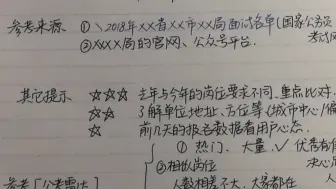 参考来源 ① \ 2018年XX省XX市XX局面试名单(国家公务员
考试
② XXXX局的官网、公众号平台.
其它提示 ☆☆☆ 去年与今年的岗位要求不同,重点比对.
☆☆ 了解单位地址、方位等(城市中心/偏
☆ 前几天的报名数据看用户心态.
① 热门、大量 ✓ 优秀
② 相似岗位
参考「公考雷达」 人数相差不大,大家都在